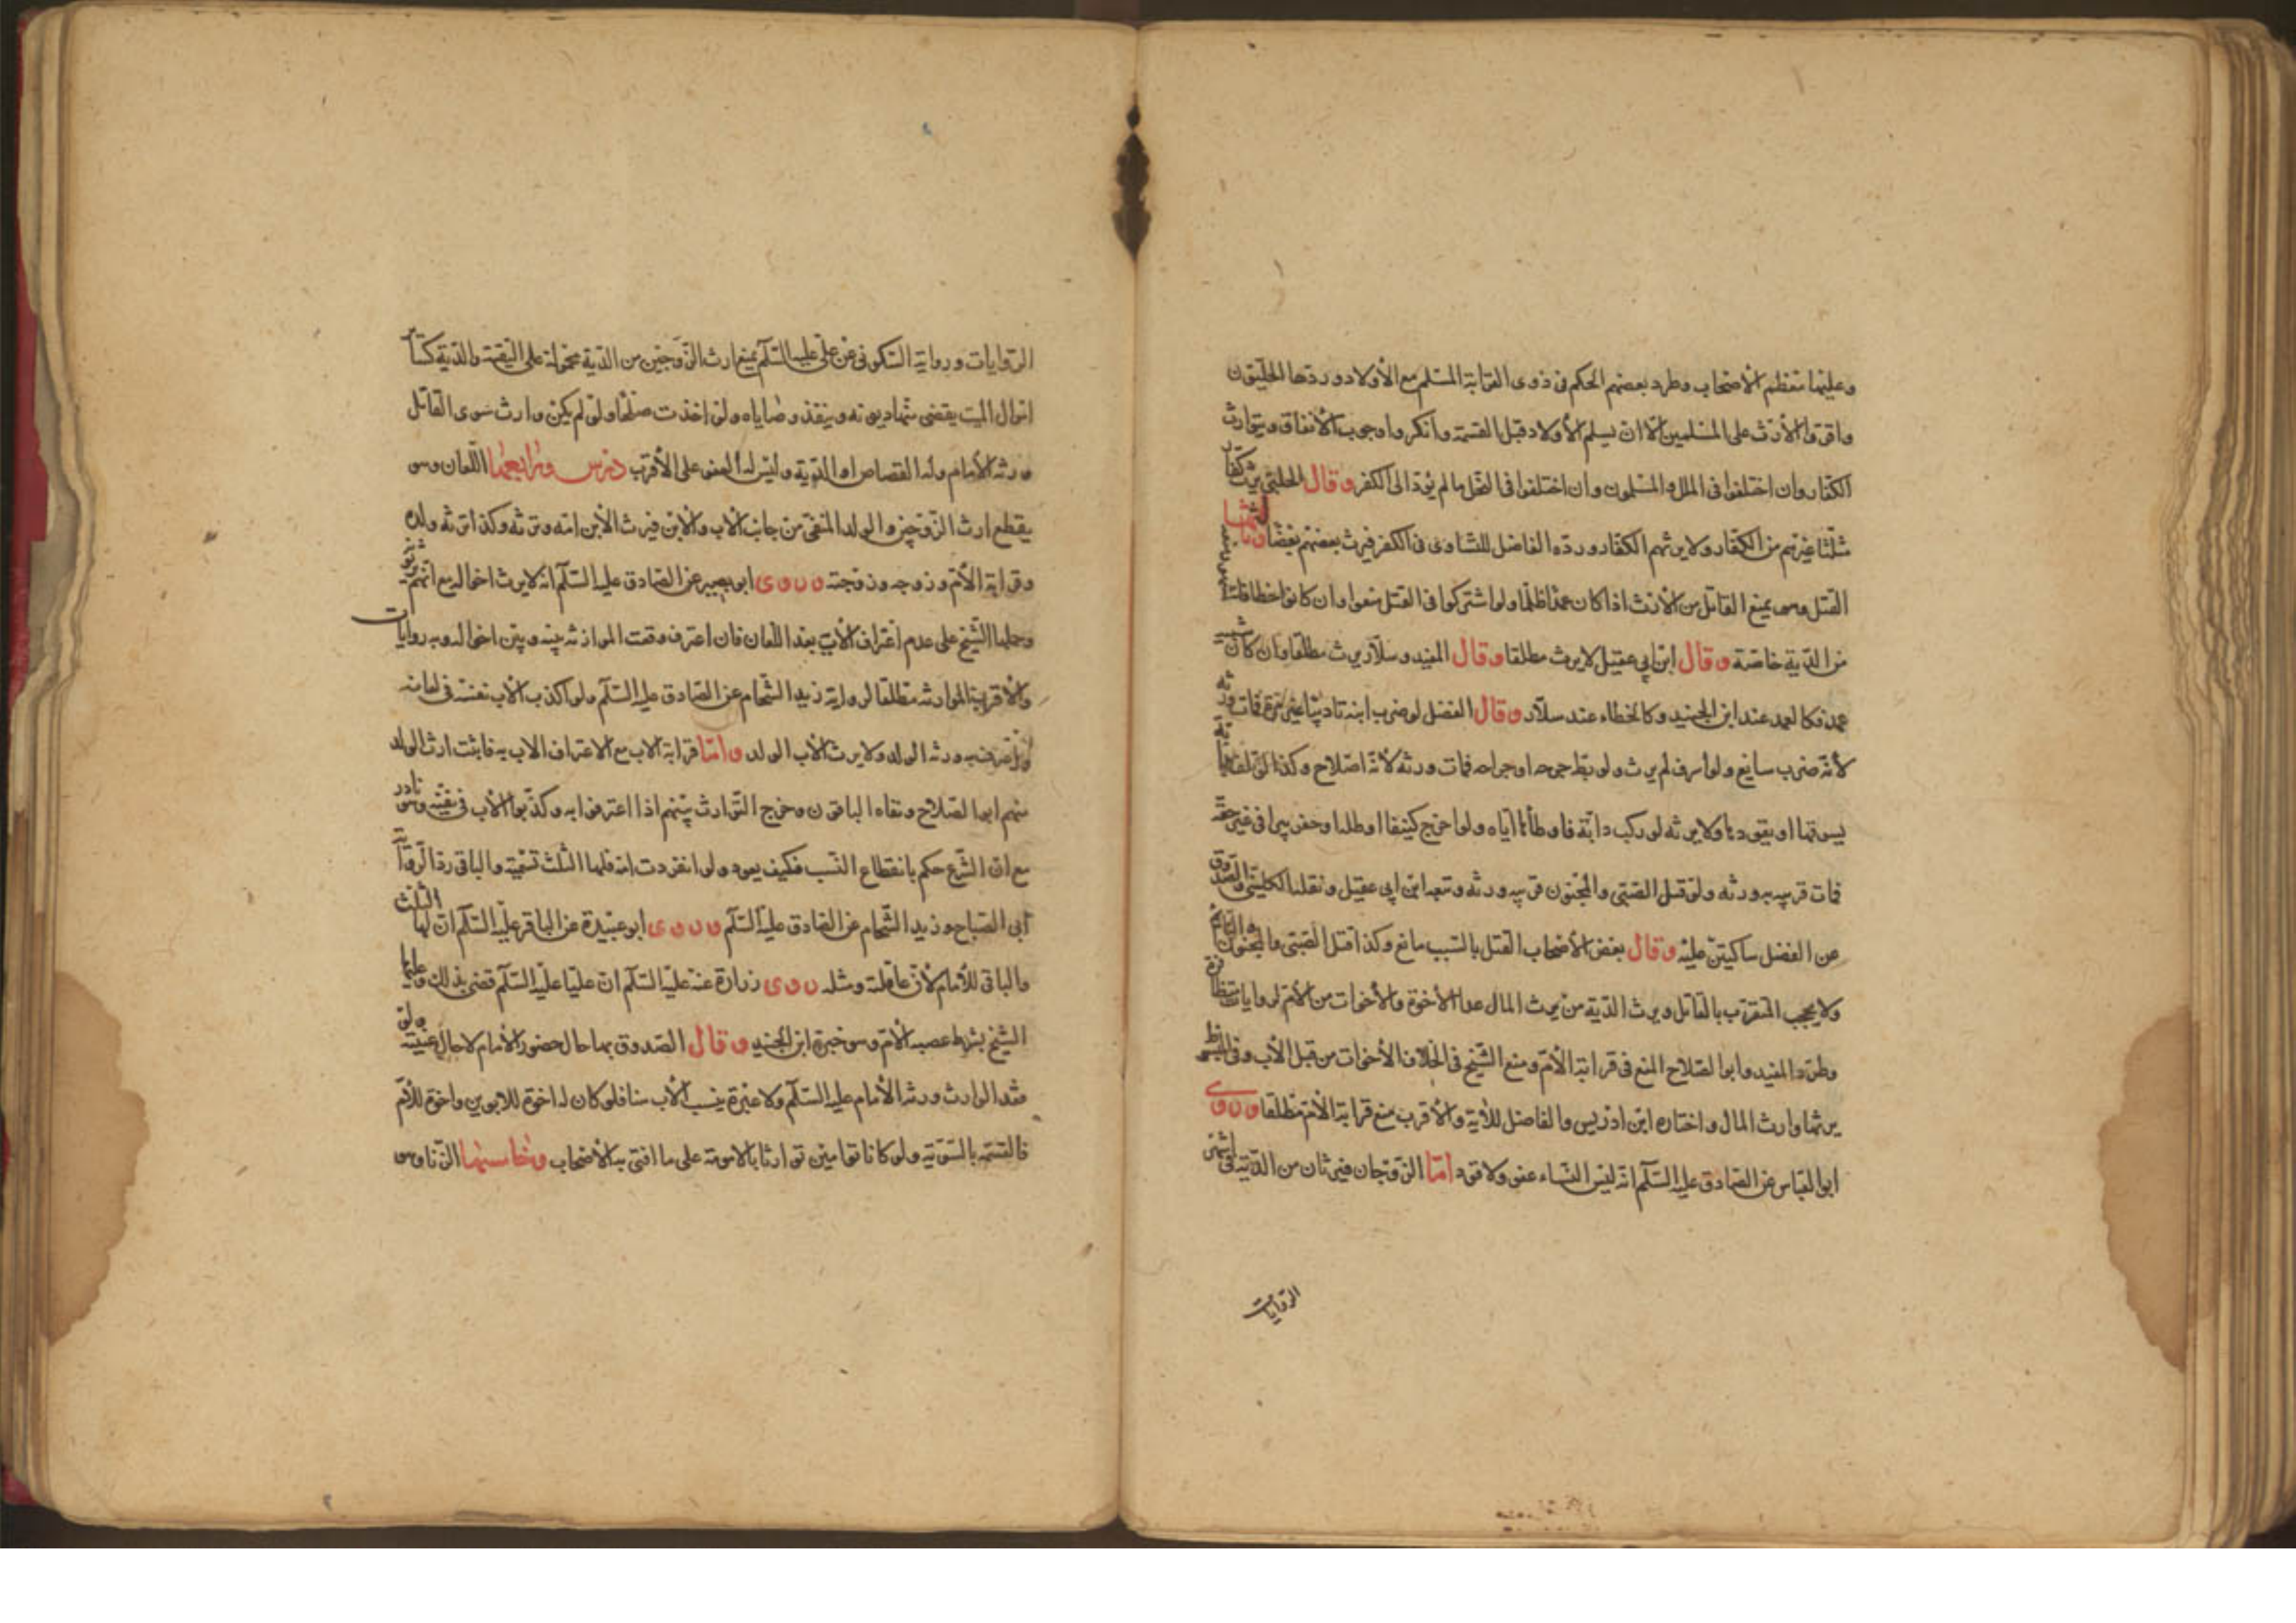 وعليها معظم الأصحاب وطرد بعضهم الحكم في ذوي القرابة المسلم مع الأولاد وردها الحليون
واقروا الأرث على المسلمين الا ان يسلم الأولاد قبل القسمة وانكروا وجوب الأنفاق ويتوارث
الكفار وان اختلفوا في الملل والمسلمون وان اختلفوا في النحل ما لم يؤد الى الكفر وقال الحلبي يرث كفار
ملتنا غيرهم من الكفار ولا يرثهم الكفار ورده الفاضل للتساوي في الكفر فيرث بعضهم بعضا وثالثها
القتل وهو يمنع القاتل من الأرث اذا كان عمدا ظلما ولو اشتركوا في القتل منعوا وان كانوا خطأ
من الدية خاصة وقال ابن ابي عقيل لا يرث مطلقا وقال المفيد وسلار يرث مطلقا وان كان شبيه
عمد فكالعمد عند ابن الجنيد وكالخطاء عند سلار وقال الفضل لو ضرب ابنه تاديبا غير مسرف فمات ورثه
لأنه ضرب سائغ ولو اسرف لم يرث ولو بط جرحه او جراحه فمات ورثه لأنه اصلاح وكذا لو تلف بدابة
يسوقها او يقودها ولا يرثه لو ركب دابة فاوطأها اياه ولو اخرج كنيفا او ظلة او حفر بيرا في غير حقه
فمات قريبه ورثه ولو قتل الصبي والمجنون قريبه ورثه وتبعه ابن ابي عقيل ونقله الكليني والصدوق
عن الفضل ساكتين عليه وقال بعض الأصحاب القتل بالسبب مانع وكذا قتل الصبي والمجنون والنائم
ولا يحجب المتقرب بالقاتل ويرث الدية من يرث المال عدا الأخوة والأخوات من الأم لروايات متظافرة
وطرد المفيد وابو الصلاح المنع في قرابة الأم ومنع الشيخ في الخلاف الأخوات من قبل الأب وفي المبسوط
يرثها وارث المال واختاره ابن ادريس والفاضل للآية والأقرب منع قرابة الأم مطلقا وروى
ابو العباس عن الصادق عليه السلم انه ليس للنساء عفو ولا قود اما الزوجان فيرثان من الدية في اشهر
الروايات
الروايات ورواية السكوني عن علي عليه السلم يمنع ارث الزوجين من الدية محمولة على التقية والدية كساير
اموال الميت يقضى منها ديونه وينفذ وصاياه ولو اخذت صلحا ولو لم يكن وارث سوى القاتل
ورثه الأمام وله القصاص او الدية وليس له العفو على الأقرب درس ورابعها اللعان وهو
يقطع ارث الزوجين والولد المنفي من جانب الأب والأبن فيرث الأبن امه وترثه وكذا يرثه ولده
وقرابة الأم وزوجه وزوجته وروى ابو بصير عن الصادق عليه السلم انه لا يرث اخواله مع انهم يرثونه
وحملها الشيخ على عدم اعتراف الأب بعد اللعان فان اعترف وقعت الموارثة بينه وبين اخواله وبه روايات
والأقرب الموارثة مطلقا لرواية زيد الشحام عن الصادق عليه السلم ولو اكذب الأب نفسه في لعانه
واعترف به ورثه الولد ولا يرث الأب الولد واما قرابة الاب مع الاعتراف الاب به فاثبت ارث الولد
منهم ابو الصلاح ونفاه الباقون وخرج التوارث بينهم اذا اعترفوا به وكذبوا الأب في نفيه وهو نادر
مع ان الشرع حكم بانقطاع النسب فكيف يعود ولو انفردت امه فلها الثلث تسمية والباقي ردا لرواية
ابى الصباح وزيد الشحام عن الصادق عليه السلم وروى ابو عبيدة عن الباقر عليه السلم ان لها الثلث
والباقي للأمام لأنه عاقلته ومثله روى زرارة عنه عليه السلم ان عليا عليه السلم قضى بذلك وعليها
الشيخ بشرط عصبه الأم وهو خيرة ابن الجنيد وقال الصدوق بها حال حضور الأمام لا حال غيبته ولو
فقد الوارث ورثه الأمام عليه السلم ولا عبرة بنسب الأب هنا فلو كان له اخوة للابوين واخوة للأم
فالقسمة بالسوية ولو كانا توامين توارثا بالامومة على ما افتى به الأصحاب وخامسها الزنا وهو